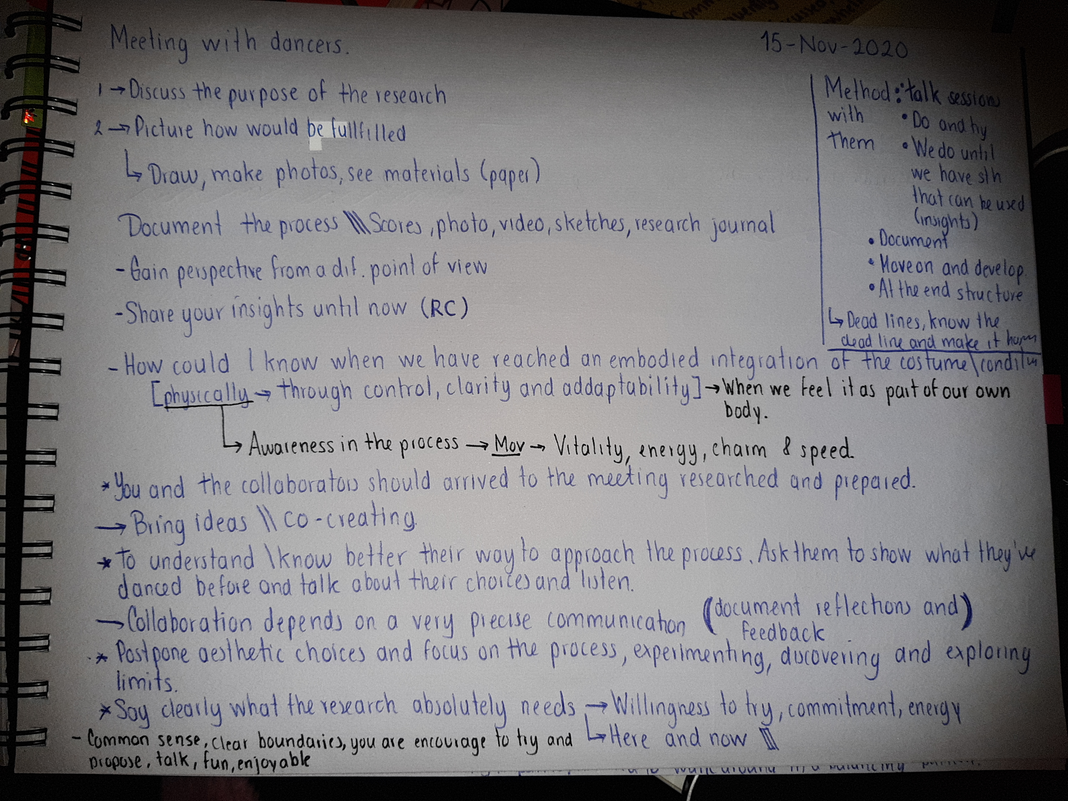 Meeting with dancers.
15-Nov-2020
1 → Discuss the purpose of the research
2 → Picture how would be fullfilled
↳ Draw, make photos, see materials (paper)
Document the process \\\ Scores, photo, video, sketches, research journal
- Gain perspective from a dif. point of view
- Share your insights until now (RC)
Method: talk sessions
with • Do and try
them • We do until
we have sth
that can be used
(insights)
• Document
• Move on and develop
• At the end structure
↳ Dead lines, know the
dead line and make it
- How could I know when we have reached an embodied integration of the costume \
[physically → through control, clarity and addaptability] → When we feel it as part of our own
body.
↳ Awareness in the process → Mov → Vitality, energy, charm & speed.
* You and the collaborators should arrived to the meeting researched and prepared.
→ Bring ideas \\ co-creating
* To understand \ know better their way to approach the process. Ask them to show what they've
danced before and talk about their choices and listen.
→ Collaboration depends on a very precise communication (document reflections and
feedback)
* Postpone aesthetic choices and focus on the process, experimenting, discovering and exploring
limits.
* Say clearly what the research absolutely needs → Willingness to try, commitment, energy
↳ Here and now \\\
- Common sense, clear boundaries, you are encourage to try and
propose, talk, fun, enjoyable